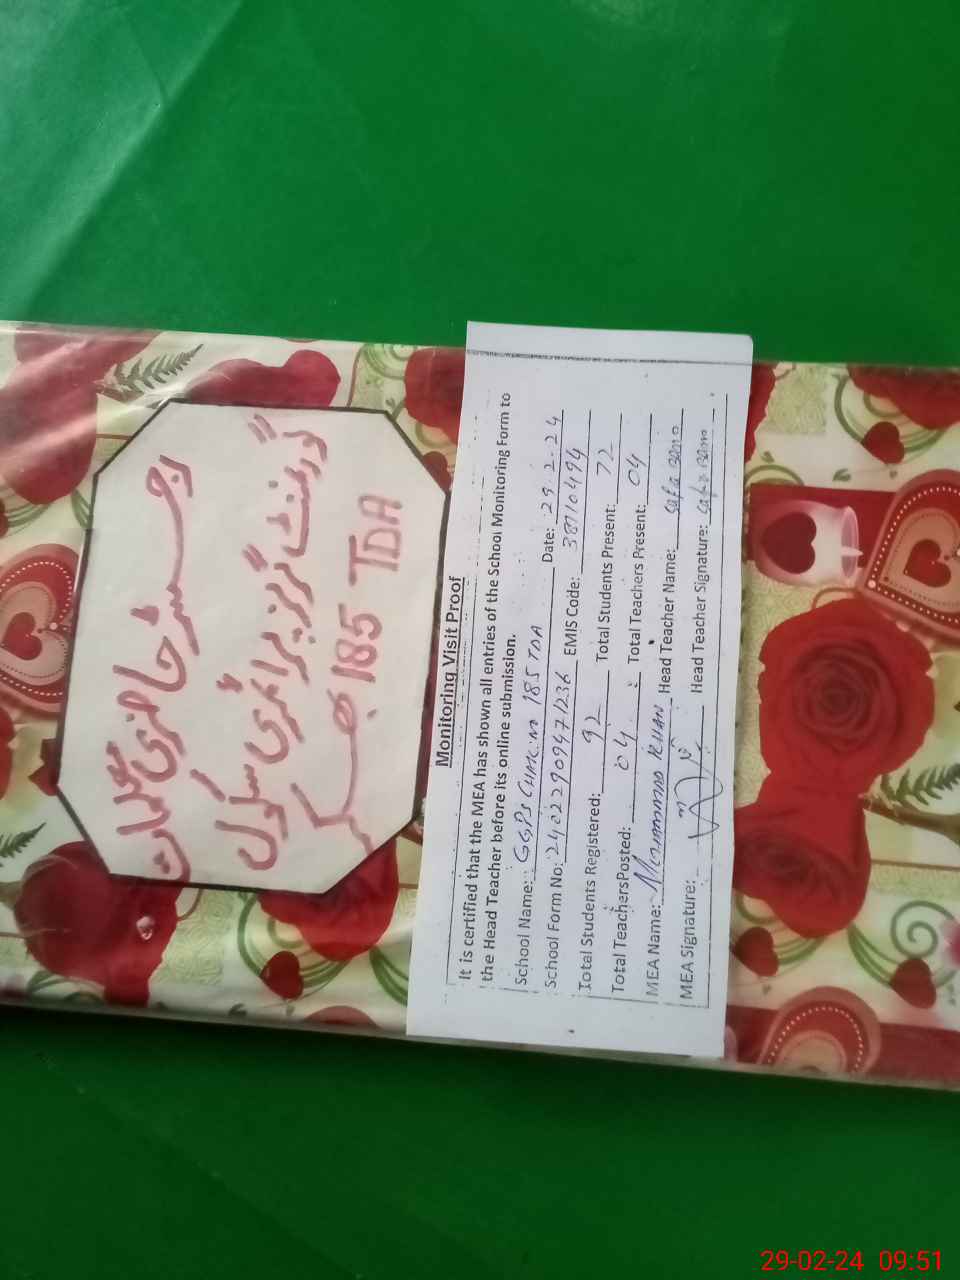 رجسٹر حاضری معلمات
گورنمنٹ گرلز پرائمری سکول
چک 185 TDA
Monitoring Visit Proof
It is certified that the MEA has shown all entries of the School Monitoring Form to
the Head Teacher before its online submission.
School Name: GGPS CHK.NO 185 TDA Date: 29.2.24
School Form No: 24022909471236 EMIS Code: 38110494
Total Students Registered: 92 Total Students Present: 72
Total TeachersPosted: 04 Total Teachers Present: 04
MEA Name: MUHAMMAD KHAN Head Teacher Name: Safa Bano
MEA Signature: Head Teacher Signature: Safa Bano
29-02-24 09:51